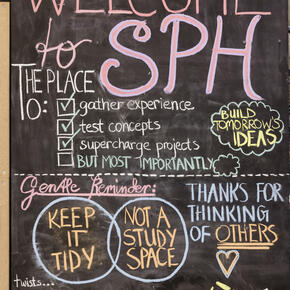 WELCOME
to SPH
THE PLACE
TO:
gather experience
test concepts
supercharge projects
BUT MOST IMPORTANTLY
BUILD
TOMORROW'S
IDEAS
Gentle Reminder:
KEEP
IT
TIDY
NOT A
STUDY
SPACE
THANKS FOR
THINKING
OF OTHERS
twists...